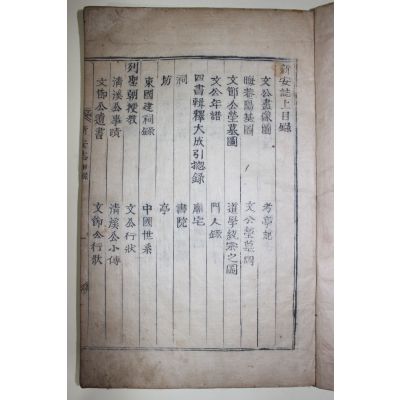 新安誌上目錄
文公畫像圖 考亭記
晦菴陽基圖 文公塋墓圖
文節公塋墓圖 道學統宗之圖
文公年譜 門人錄
四書輯釋大成引摠錄 廟宅
祠 書院
坊 亭
東國建祠錄 中國世系
列聖朝授敎 文公行狀
淸溪公事蹟 淸溪公小傳
文節公遺書 文節公行狀